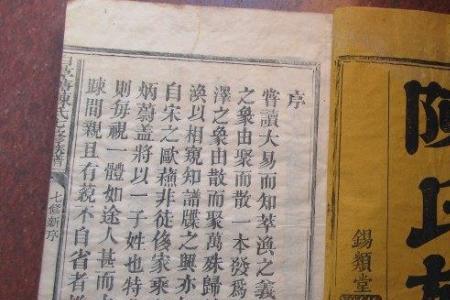 序
嘗讀大易而知萃渙之義
之象由聚而散一本發爲
澤之象由散而聚萬殊歸
渙以相窺知譜牒之興亦
自宋之歐蘇非徒後家乘
炳蒭蓋將以一子姓也特
則每視一體如途人甚而
踈間親且有藐不自省者
陳氏
七修新序
陳氏
錫類堂